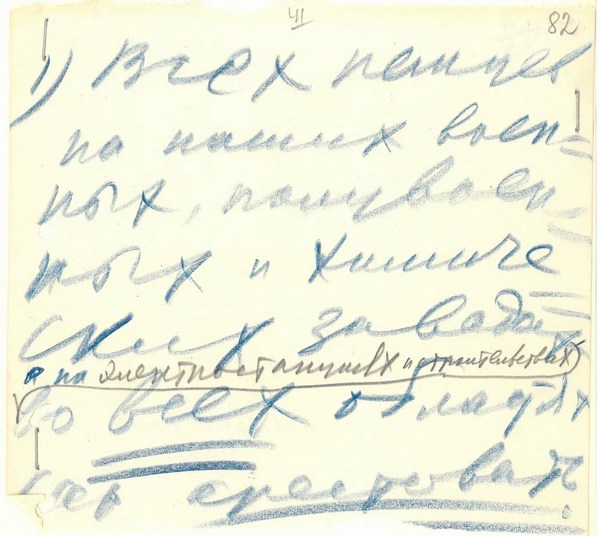 III
82
1) Всех немцев
на наших воен-
ных, полувоен-
ных и химиче-
ских заводах
и на электростанциях и строительствах)
во всех област-
ях арестовать